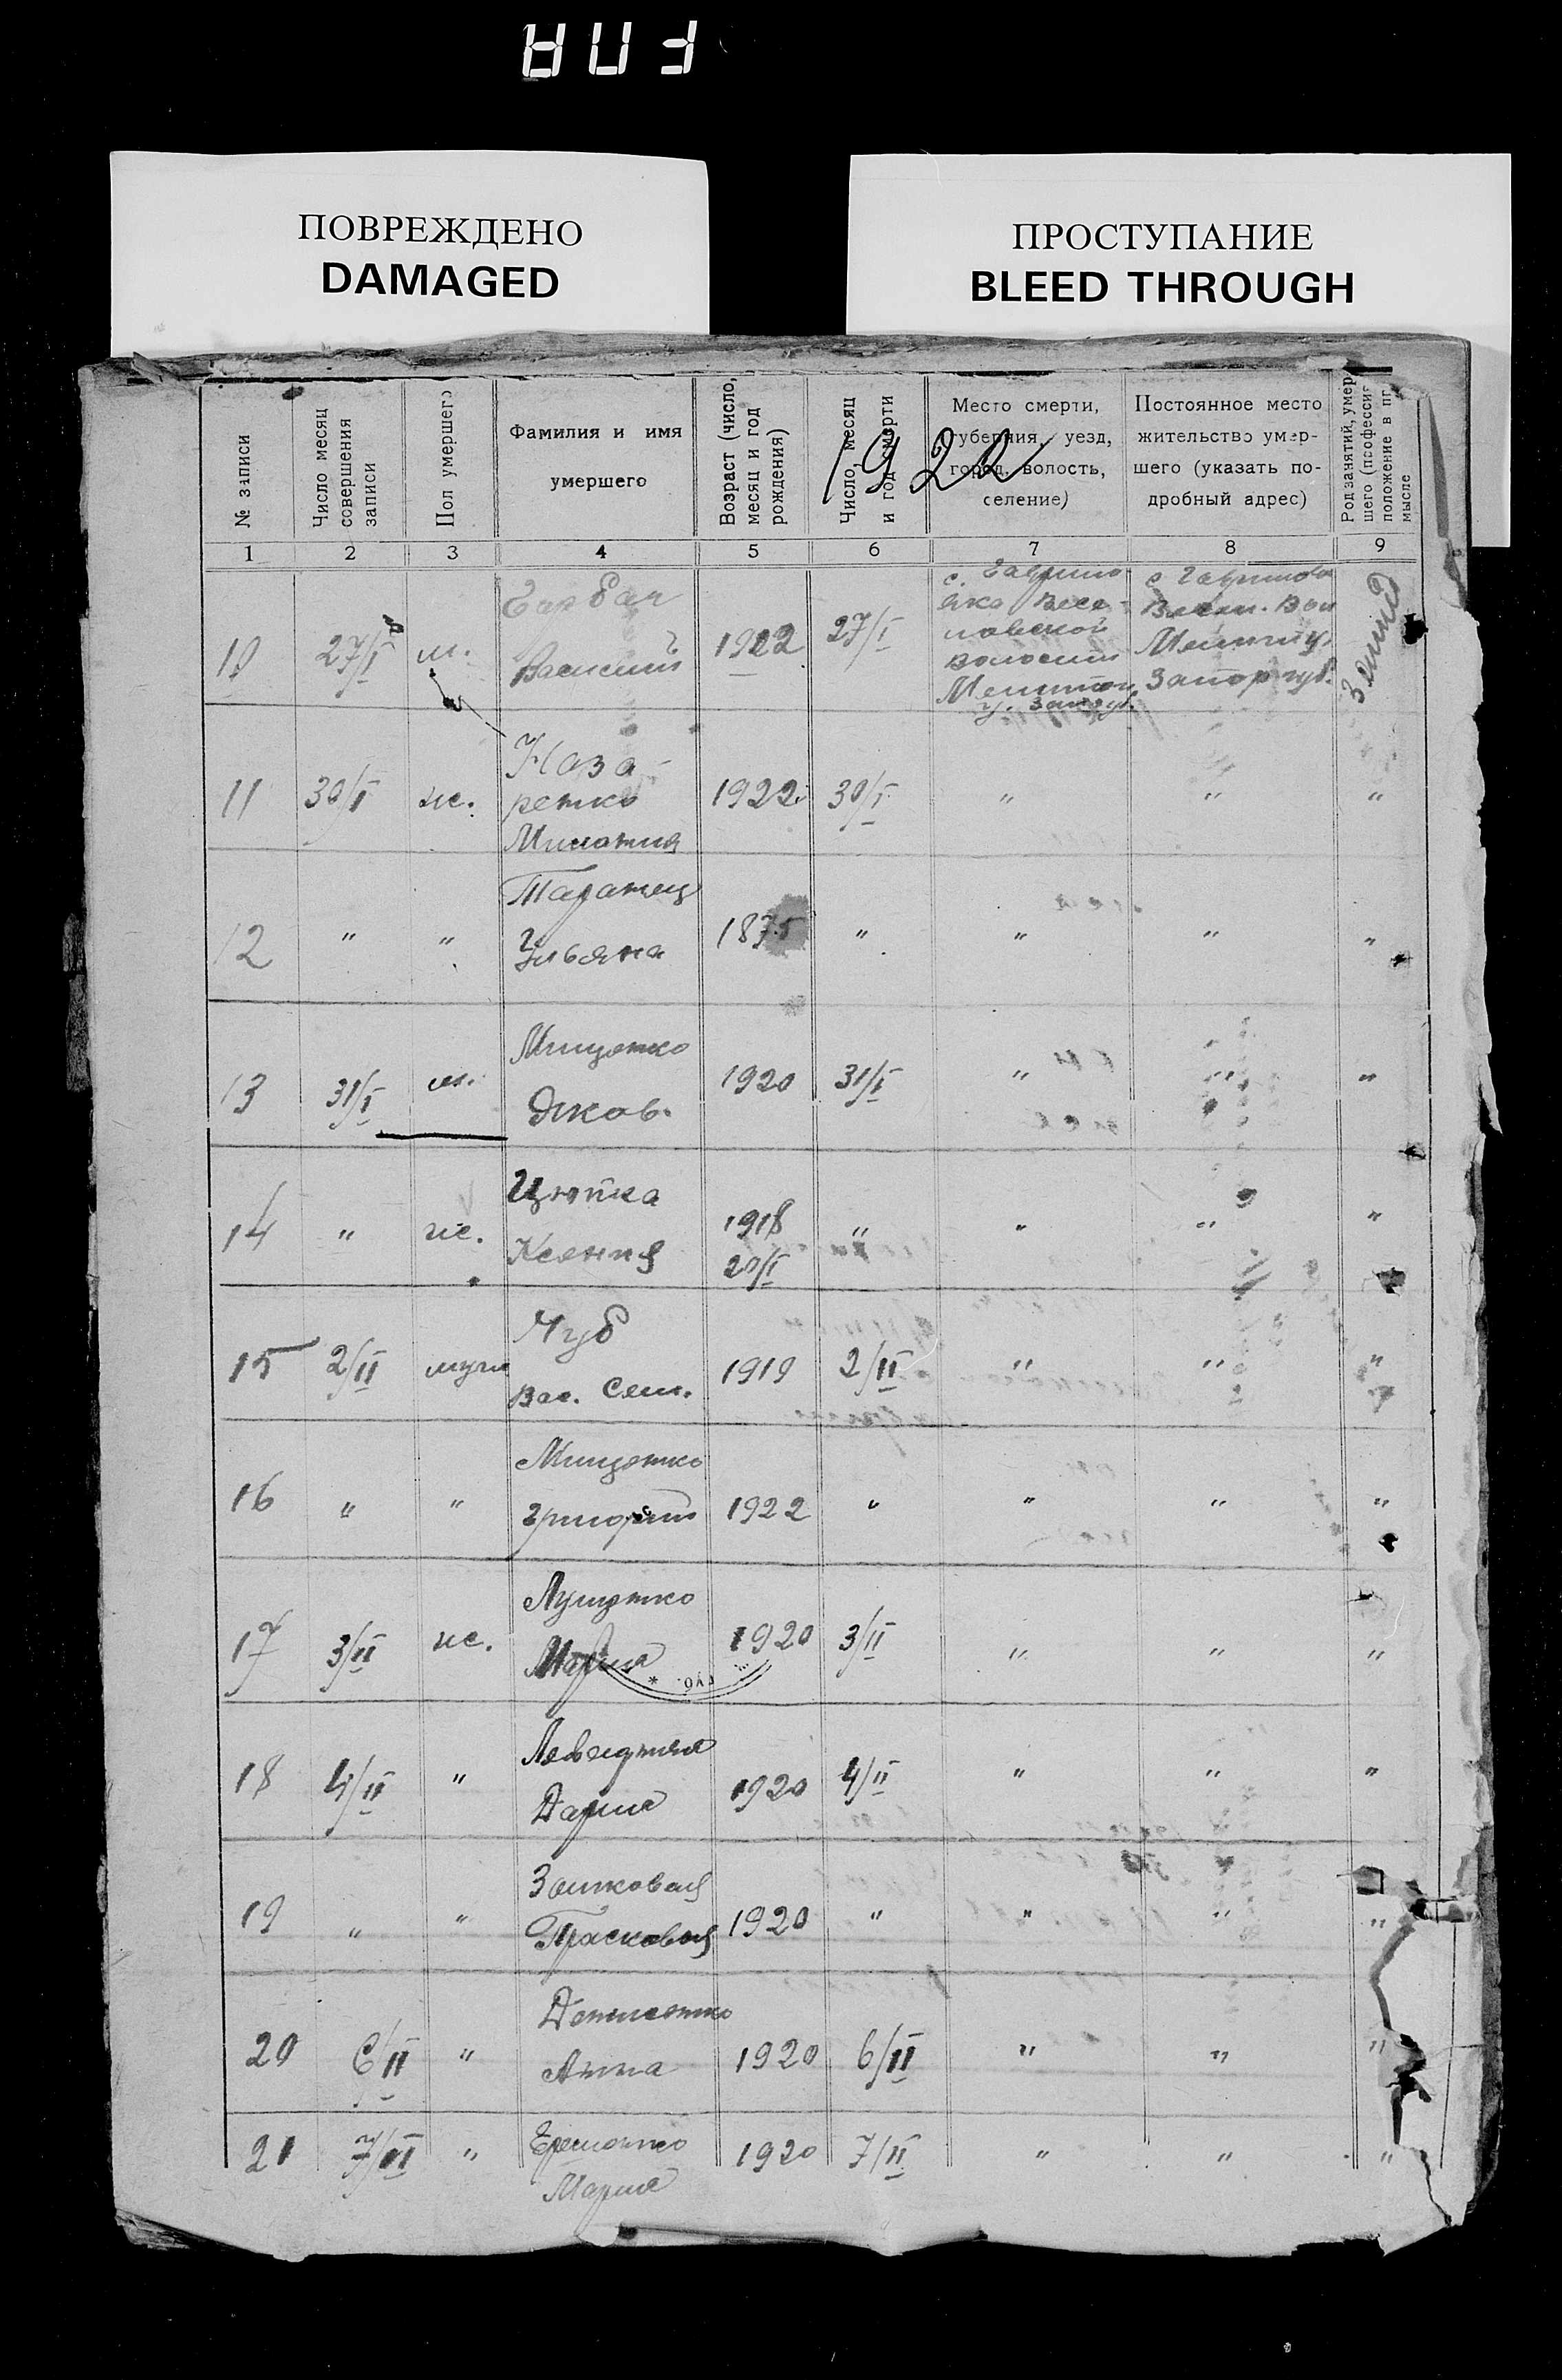 ПОВРЕЖДЕНО
DAMAGED
ПРОСТУПАНИЕ
BLEED THROUGH
1922
№ записи
Число месяц
совершения
записи
Пол умершего
Фамилия и имя
умершего
Возраст (число,
месяц и год
рождения)
Число, месяц
и год смерти
Место смерти,
губерния, уезд,
город, волость,
селение)
Постоянное место
жительство умер-
шего (указать по-
дробный адрес)
Род занятий, умер
шего (професси
положение в п
мысле
1 2 3 4 5 6 7 8 9
10 27/I м.
Василий
1922 27/I
волости
Запор губ.
11 30/I ж.
Наза-
ренко
1922 30/I " " "
12 " "
Таранец
Ульяна
1875 " " " "
13 31/I м.
Мищенко
Яков.
1920 31/I " " "
14 " ж.
Цюпка
Ксения
1918
20/I
" " " "
15 2/II муж
Чуб
Вас. Сем.
1919 2/II " " "
16 " "
Мищенко
Григорий
1922 " " " "
17 3/II ж.
Лущенко
Мария
1920 3/II " " "
18 4/II "
Дария
1920 4/II " " "
19 " "
Прасковья
1920 " " " "
20 6/II "
Денисенко
Анна
1920 6/II " " "
21 7/II "
Еременко
Мария
1920 7/II " " "